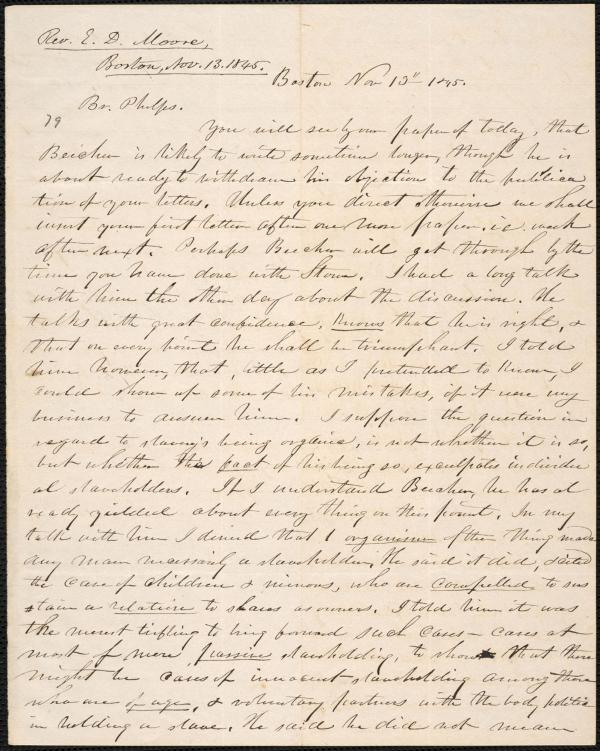 Rev. E. D. Moore,
Boston, Nov. 13. 1845.
Boston Nov 13" 1845.
Br. Phelps.
79
You will see by our paper of today, that
Beecher is likely to write sometime longer, though he is
about ready to withdraw his objection to the publica
tion of your letters. Unless you direct otherwise we shall
insert your first letter after one more paper. i.e. week
after next. Perhaps Beecher will get through by the
time you have done with Stowe. I had a long talk
with him the other day about the discussion. He
talks with great confidence, knows that he is right, &
that on every point he shall be triumphant. I told
him however, that, little as I pretended to know, I
could show up some of his mistakes, if it were my
business to answer him. I suppose the question in
regard to slavery's being organic, is not whether it is so,
but whether the fact of its being so, exculpates individu
al slaveholders. If I understand Beecher, he has al
ready yielded about every thing on this point. In my
talk with him I denied that organism of the thing made
any man necessarily a slaveholder. He said it did, & cited
the case of children & minors, who are compelled to sus
tain a relation to slaves as owners. I told him it was
the merest trifling to bring forward such cases – cases at
most of mere passive slaveholding, to show that there
might be cases of innocent slaveholding among those
who are of age, & voluntary partners with the body politic
in holding a slave. He said he did not mean